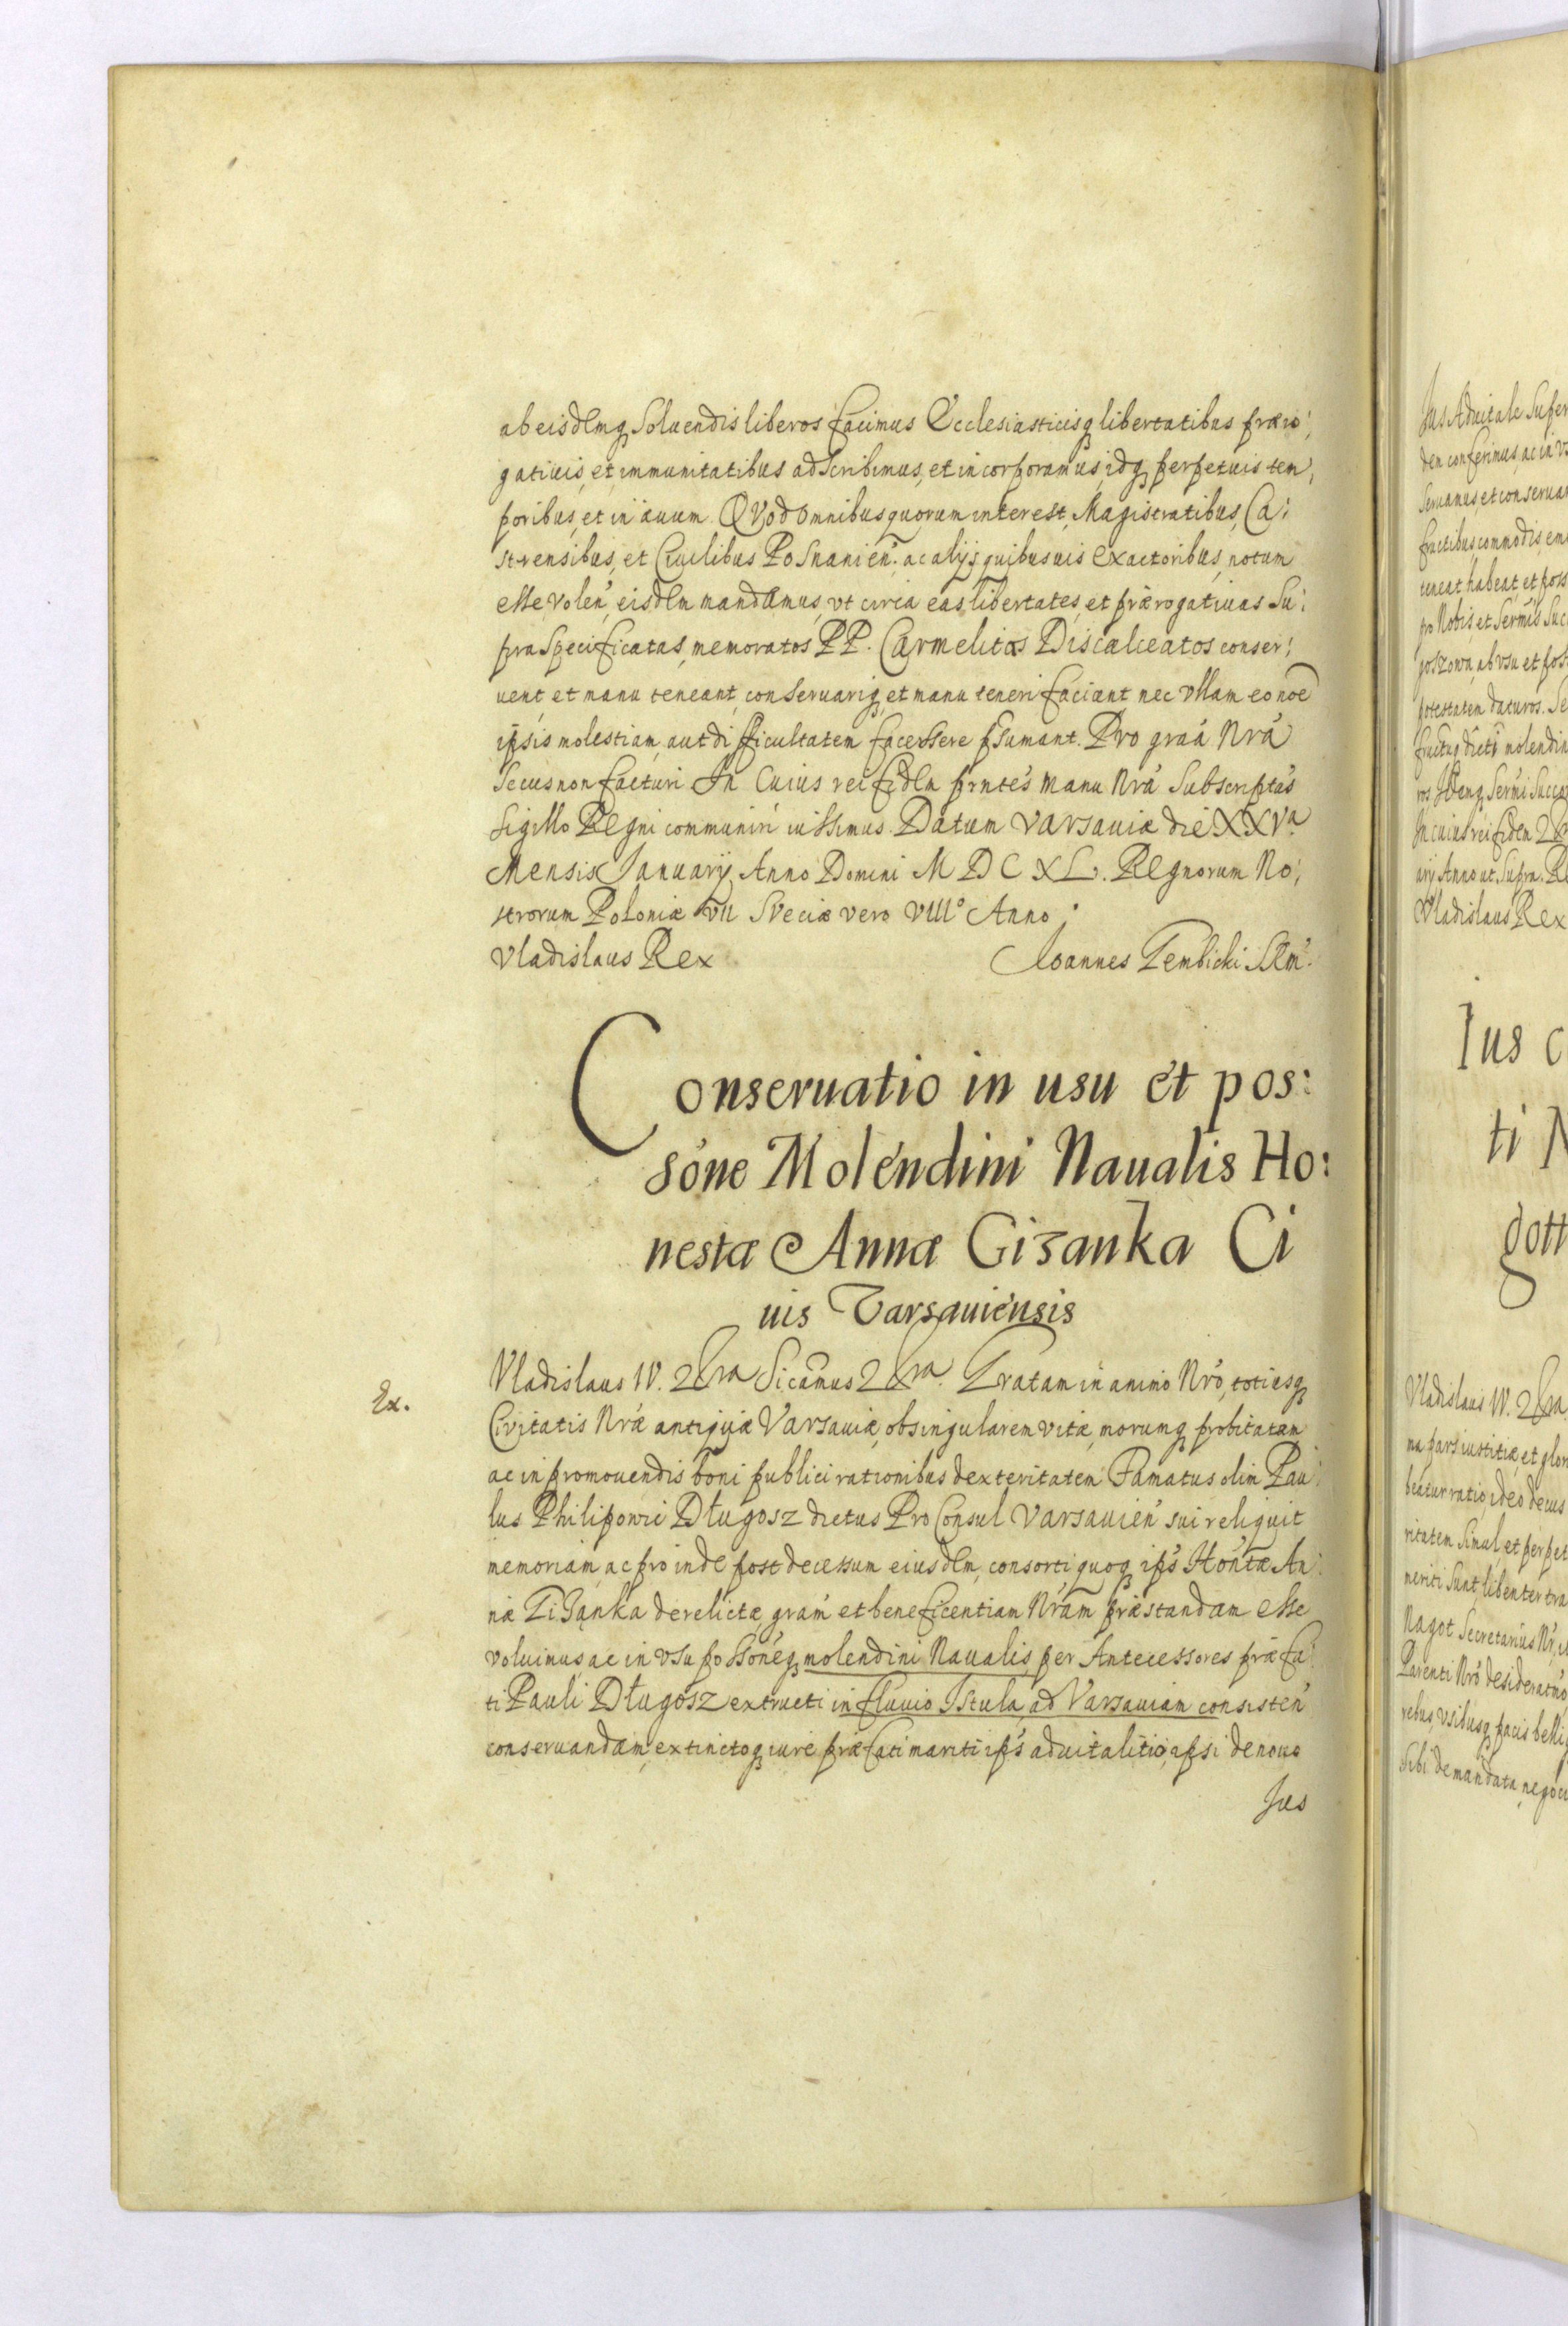 ab eisdemq; soluendis liberos facimus Ecclesiasticisq; libertatibus præro:
gatiuis, et immunitatibus adscribimus, et incorporamus, idq; perpetuis tem:
poribus, et in æuum. QVod omnibus quorum interest, Magistratibus, Ca:
strensibus, et Ciuilibus Posnanień. ac alijs quibusuis exactoribus, notum
esse voleń, eisdm mandamus, vt circa eas libertates, et prærogatiuas su:
pra specificatas, memoratos PP. Carmelitas Discalceatos conser:
uent, et manu teneant, conseruariq; et manu teneri faciant nec vllam eo noe
ipsis molestiam, aut difficultatem facessere psumant. Pro graa Nra
secus non facturi. In Cuius rei fidem prntes manu Nra subscriptas
sigillo Regni communiri iussimus. Datum Varsauiæ die XXVa
Mensis January Anno Domini MDCXL. Regnorum No:
strorum Poloniæ VII Sveciæ vero VIIIo Anno.
Vladislaus Rex Joannes Gembicki SRM.
Conseruatio in usu et pos:
sone Molendini Naualis Ho:
nestæ Annæ Gizanka Ci
uis Varsauiensis
Ex.
Vladislaus IV. &ra Sicamus &ra. Gratam in animo Nro, totiesq;
Civitatis Nræ antiquæ Varsauiæ, ob singularem vitæ, morumq; probitatem
ac in promouendis boni publici rationibus dexteritatem Famatus olim Pau:
lus Philipowic Długosz dictus Pro Consul Varsauień sui reliquit
memoriam, ac proinde post decessum eiusdm, consorti quoq; ips Hontæ An:
næ Gizanka derelictæ, gram et beneficentiam Nram præstandam esse
voluimus, ac in vsu possoneq; molendini Naualis, per Antecessores præfa:
ti Pauli Długosz extructi in fluuio Istula, ad Varsauiam consisteń
conseruandam, extinctoq; iure præfati mariti ips aduitalitio, ipsi denouo
Jus